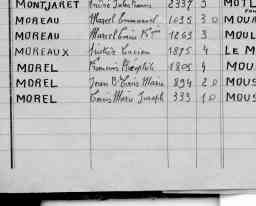 MONTJARET 2337 3 MOTL
MOREAU Marcel Emmanuel 1035 3 D MOUR
MOREAU Marcel Louis 1263 3 MOUL
MOREAUX Lucien 1875 4 LE M
MOREL François Théophile 1805 4 MOUS
MOREL Jean Bte Louis Marie 894 2 D MOUS
MOREL Louis Marie Joseph 333 1 D MOUS